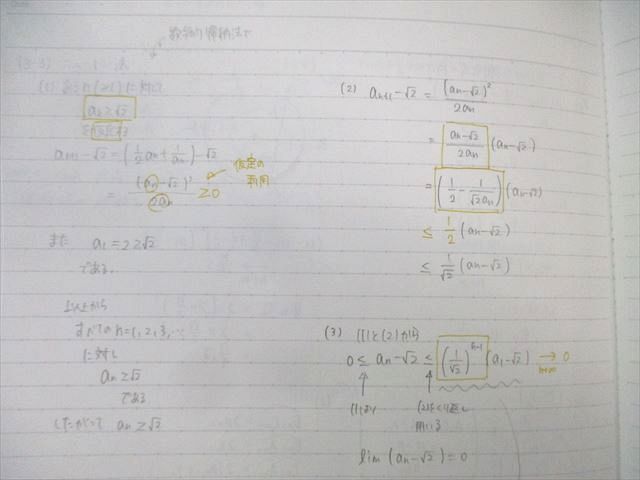 数学的帰納法で
(3-3) ニュートン法
(1) ある n (≥1) に対して
an ≥ √2
を仮定する
an+1 - √2 = (1/2 an + 1/an) - √2
= (an - √2)² / 2an ≥ 0
仮定の
利用
また a1 = 2 ≥ √2
である.
以上から
すべての n=1, 2, 3, …
に対し
an ≥ √2
である
したがって an ≥ √2
(2) an+1 - √2 = (an - √2)² / 2an
= (an - √2) / 2an (an - √2)
= (1/2 - 1/√2an) (an - √2)
≤ 1/2 (an - √2)
≤ 1/√2 (an - √2)
(3) (1)と(2)から
0 ≤ an - √2 ≤ (1/√2)^n-1 (a1 - √2) → 0
n→∞
(1)より
(2)をくり返し
用いる
lim (an - √2) = 0